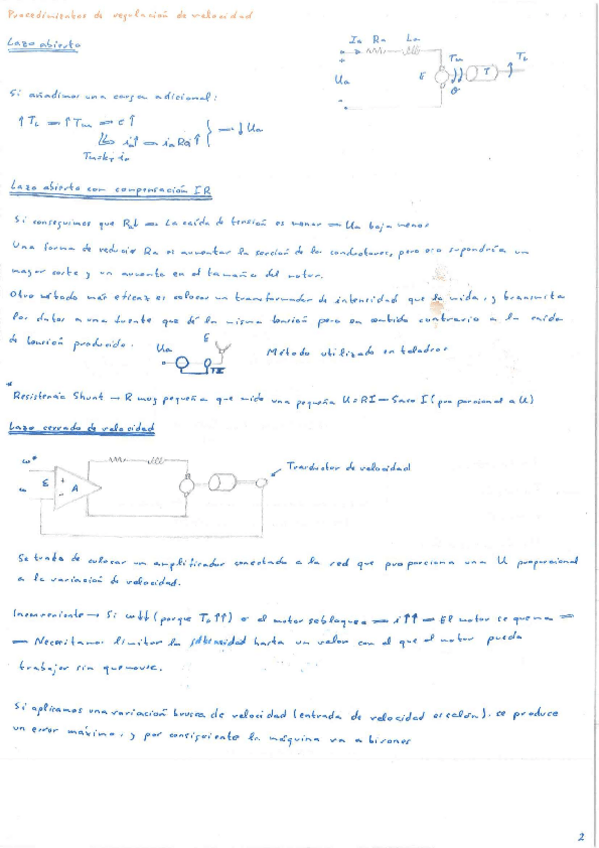 Procedimientos de regulación de velocidad
Lazo abierto
Ia Ra La
+
Ua
-
E
Tm
T
TL
Si añadimos una carga adicional:
↑TL → ↑Tm → e↑
↳ ia↑ → iaRa↑ } → ↓Ua
Tm=kT ia
Lazo abierto con compensación IR
Si conseguimos que Ra↓ → La caída de tensión es menor → Ua baja menos
Una forma de reducir Ra es aumentar la sección de los conductores, pero eso supondría un
mayor coste y un aumento en el tamaño del motor.
Otro método más eficaz es colocar un transformador de intensidad que la mida, y transmita
los datos a una fuente que dé la misma tensión pero en sentido contrario a la caída
de tensión producida.
Ua
E
TI
Método utilizado en taladros
* Resistencia Shunt → R muy pequeña que mide una pequeña U=RI → Saco I (proporcional a U)
Lazo cerrado de velocidad
ω*
ω
E
+
-
A
Transductor de velocidad
Se trata de colocar un amplificador conectado a la red que proporciona una U proporcional
a la variación de velocidad.
Inconveniente → Si ω↓↓ (porque TL↑↑) o el motor se bloquea → i↑↑ → El motor se quema →
→ Necesitamos limitar la intensidad hasta un valor con el que el motor pueda
trabajar sin quemarse.
Si aplicamos una variación brusca de velocidad (entrada de velocidad escalón), se produce
un error máximo, y por consiguiente la máquina va a tirones
2